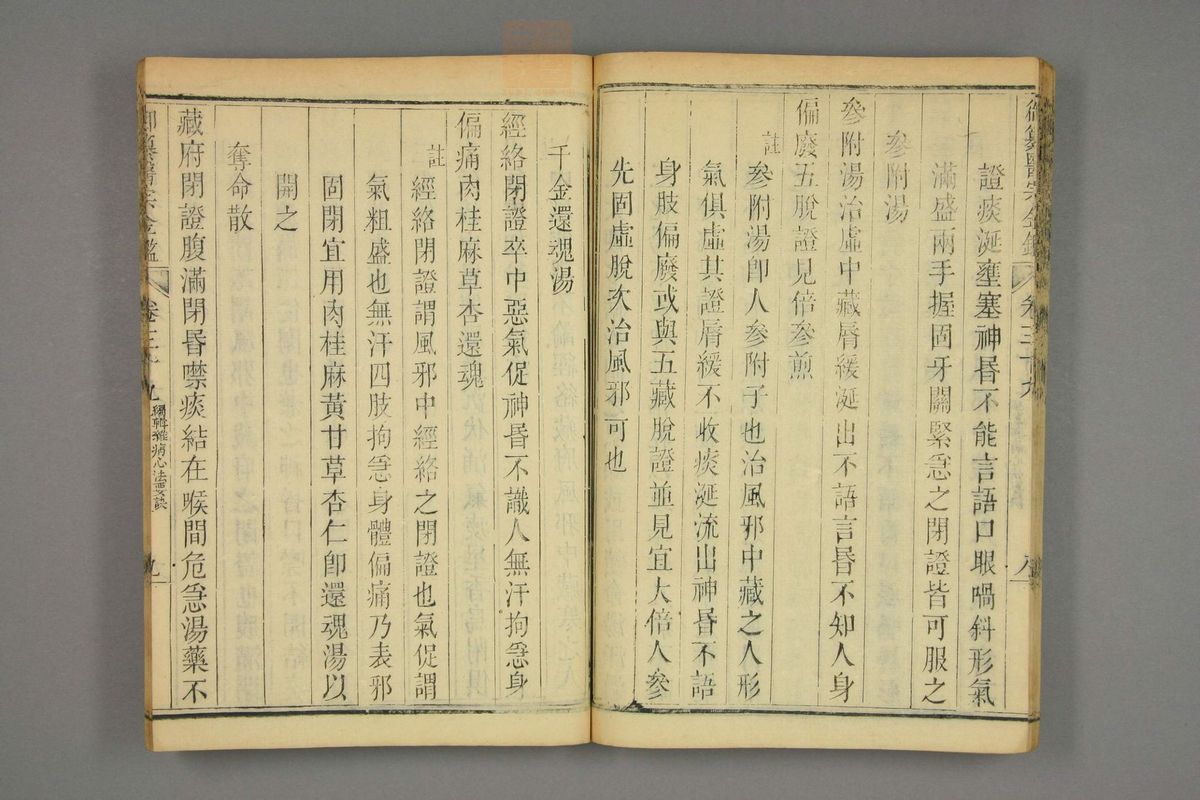 御纂醫宗金鑑 卷三十九 八
證痰涎壅塞神昏不能言語口眼喎斜形氣
滿盛兩手握固牙關緊急之閉證皆可服之
參附湯
參附湯治虛中藏脣緩涎出不語言昏不知人身
偏廢五脫證見倍參煎
註
參附湯卽人參附子也治風邪中藏之人形
氣俱虛其證脣緩不收痰涎流出神昏不語
身肢偏廢或與五藏脫證並見宜大倍人參
先固虛脫次治風邪可也
千金還魂湯
經絡閉證卒中惡氣促神昏不識人無汗拘急身
偏痛肉桂麻草杏還魂
註
經絡閉證謂風邪中經絡之閉證也氣促謂
氣粗盛也無汗四肢拘急身體偏痛乃表邪
固閉宜用肉桂麻黃甘草杏仁卽還魂湯以
開之
奪命散
藏府閉證腹滿閉昏噤痰結在喉間危急湯藥不
御纂醫宗金鑑 卷三十九 編輯雜病心法要訣 九